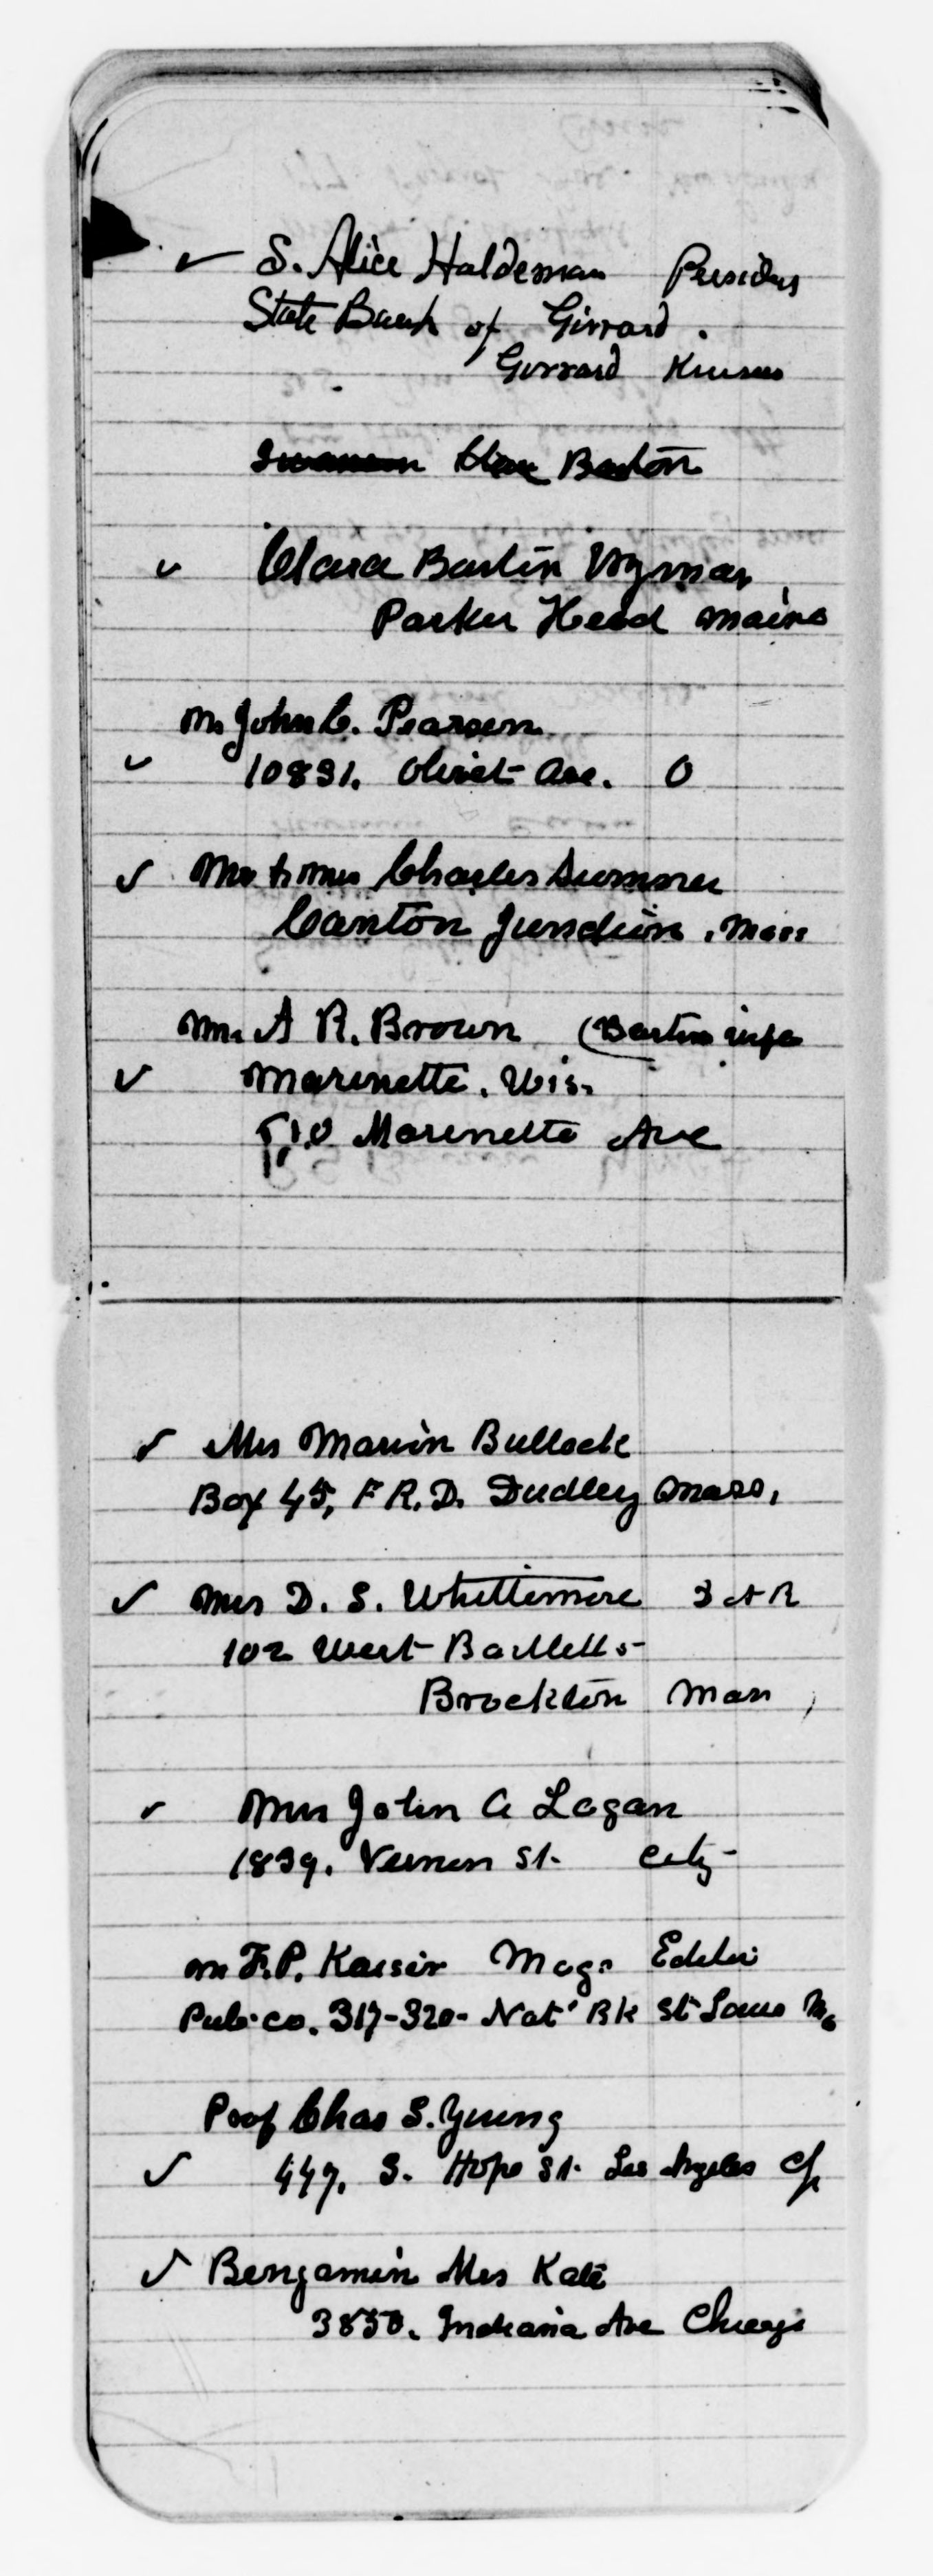 ✓ S. Alice Haldeman Presiden
State Bank of Girrard.
Girrard Kansas
Clara Barton
✓ Clara Bartin Wyman
Parker Head Maine
Mr John C. Pearson
✓ 10831. Olivet Ave. O
✓ Mr & Mrs Charles Sumner
Canton Junction, Mass
Mr. A R. Brown (Bertive wife
✓ Marinette. Wis.
510 Marinette Ave
✓ Mrs Marion Bullock
Box 45, F R. D. Dudley Mass,
✓ Mrs D. S. Whittemore D A R
102 West Bartlett s-
Brockton Mass
✓ Mrs John A Logan
1839. Vernon St. City-
Mr F. P. Kaiser Mags Editor
Pub. co. 317-320- Nat' Bk St Louis Mo
Proof Chas S. Young
✓ 447. S. Hope St. Los Angeles
✓ Benjamin Mrs Kate
3850. Indiana Ave Chicago